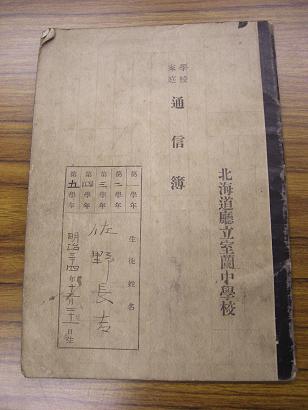 北海道廳立室蘭中學校
學校
家庭
通信簿
第一學年
第二學年
第三學年
第四學年
第五學年
生徒姓名
佐野長吉
明治三四年月日生